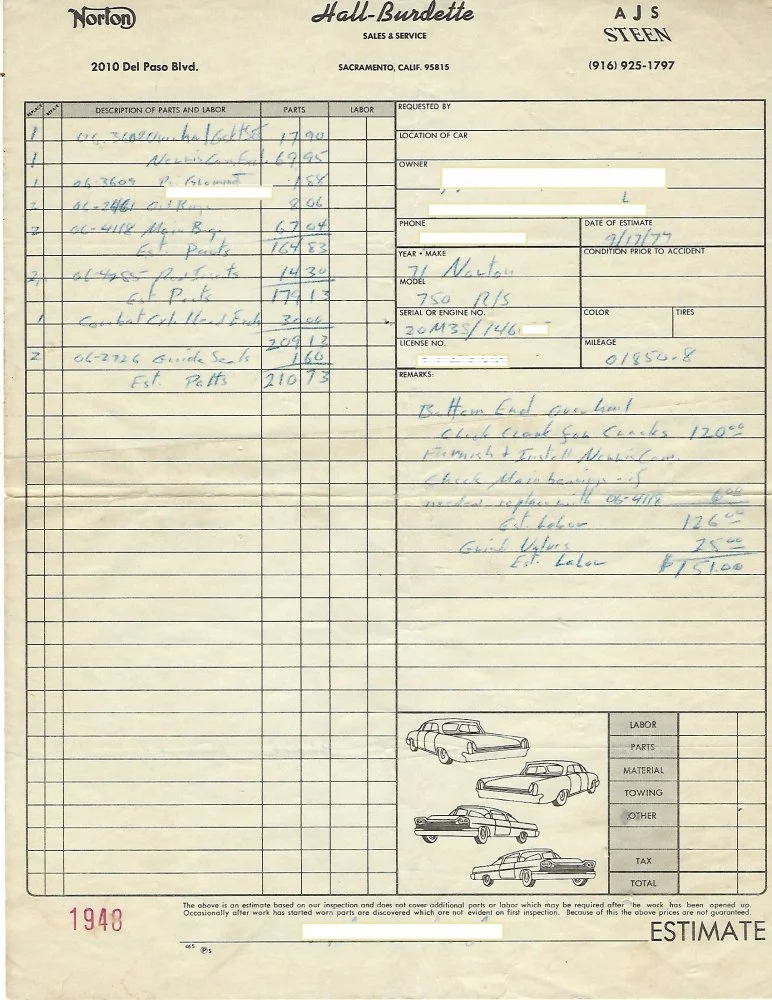 Norton
Hall-Burdette
SALES & SERVICE
A J S
STEEN
2010 Del Paso Blvd.
SACRAMENTO, CALIF. 95815
(916) 925-1797
DESCRIPTION OF PARTS AND LABOR PARTS LABOR
1 Gskt Set 17 90
1 69 95
1 06-3609 1 88
2 Oil 8 06
2 06-4118 Main Brg. 67 04
Est. Parts 164 83
2 06-4285 14 30
Est Parts 179 13
1 Combat Cyl. Head Exch 30 00
209 13
2 06-2726 Guide Seals 1 60
Est. Parts 210 73
REQUESTED BY
LOCATION OF CAR
OWNER
PHONE
DATE OF ESTIMATE
9/17/77
YEAR • MAKE
71 Norton
CONDITION PRIOR TO ACCIDENT
MODEL
750 R/S
SERIAL OR ENGINE NO.
20M3S/146
COLOR
TIRES
LICENSE NO.
MILEAGE
01850.8
REMARKS:
Bottom End Overhaul
Check Crank for Cracks 120 00
Furnish & Install Cam.
Check Main bearings - if
needed replace with 06-4118 6 00
Est. Labor 126 00
Grind Valves 25 00
Est. Labor $151.00
LABOR
PARTS
MATERIAL
TOWING
OTHER
TAX
TOTAL
1948
The above is an estimate based on our inspection and does not cover additional parts or labor which may be required after the work has been opened up.
Occasionally after work has started worn parts are discovered which are not evident on first inspection. Because of this the above prices are not guaranteed.
ESTIMATE
465